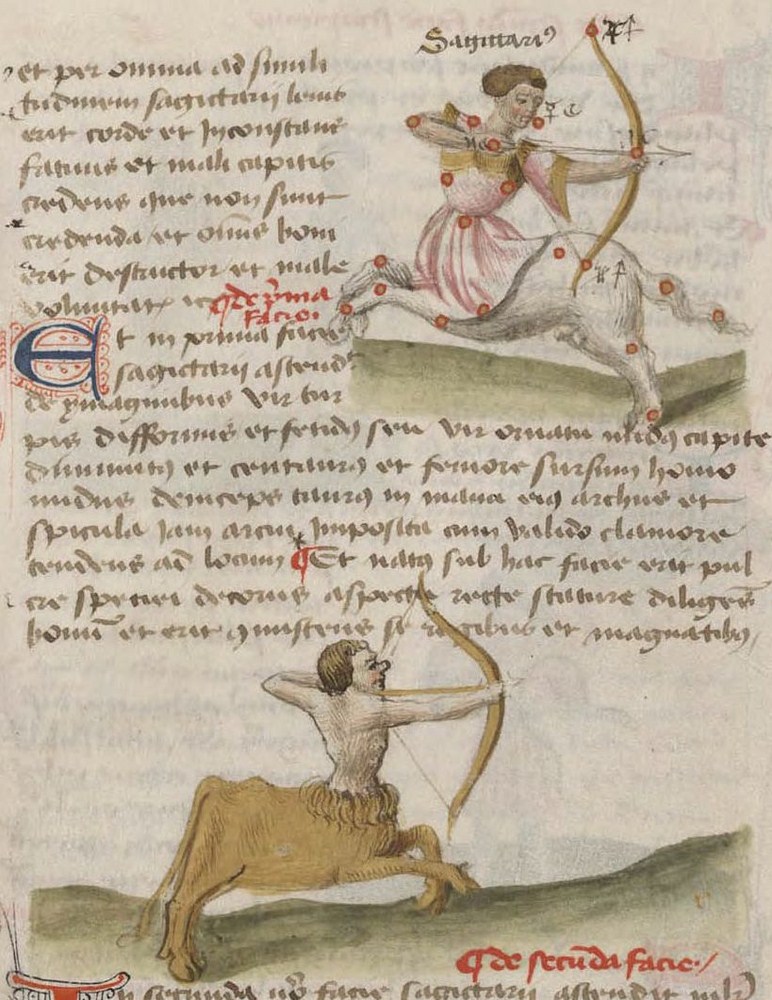 Sagittariꝰ
et per omnia ad simili
tudinem sagittarij leuis
erit corde et Inconstans
fatuus et mali capitis
credens que non sunt
credenda et om̄is boni
erit destructor et male
voluntatis
¶ de p̄ma
facie
Et in prima facie
sagittarij ascendꝰ
de ymaginibus vir tur
pis difformis et fetidꝰ seu vir ornatu nudꝰ capite
diminutꝰ et centaurꝰ et femore sursum homo
nudus deinceps taurꝰ in manu eiꝰ archus et
spicula Iam arcui Imposita cum valido clamore
tendens ad locum ¶ Et natꝰ sub hac facie erit pul
cre speciei decorus aspectu recte stature diligēs
bonū et erit ꝯmistens se regibus et magnatibꝰ
¶ de secūda facie
In secunda facie sagittarij ascendit